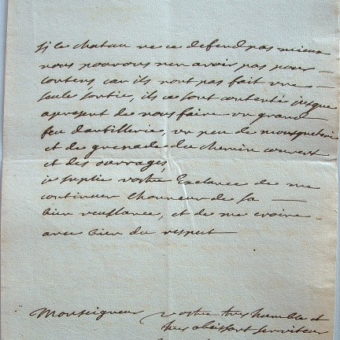 si le chatau ne ce defend pas mieux
nous pouvons n'en avoir pas pour
contens car ils n'ont pas fait une
seule sortie, ils ce sont contenté jusque
apresent de nous faire un grand
feu dartillerie un peu de mousqueterie
et de grenade du chemin couvert
et des ouvrages
je suplie vostre Exelance de me
continuer l'honneur de sa
bien veuillance, et de me croire
avec bien du respect
Monseigneur vostre tres humble et
tres obeissant serviteur